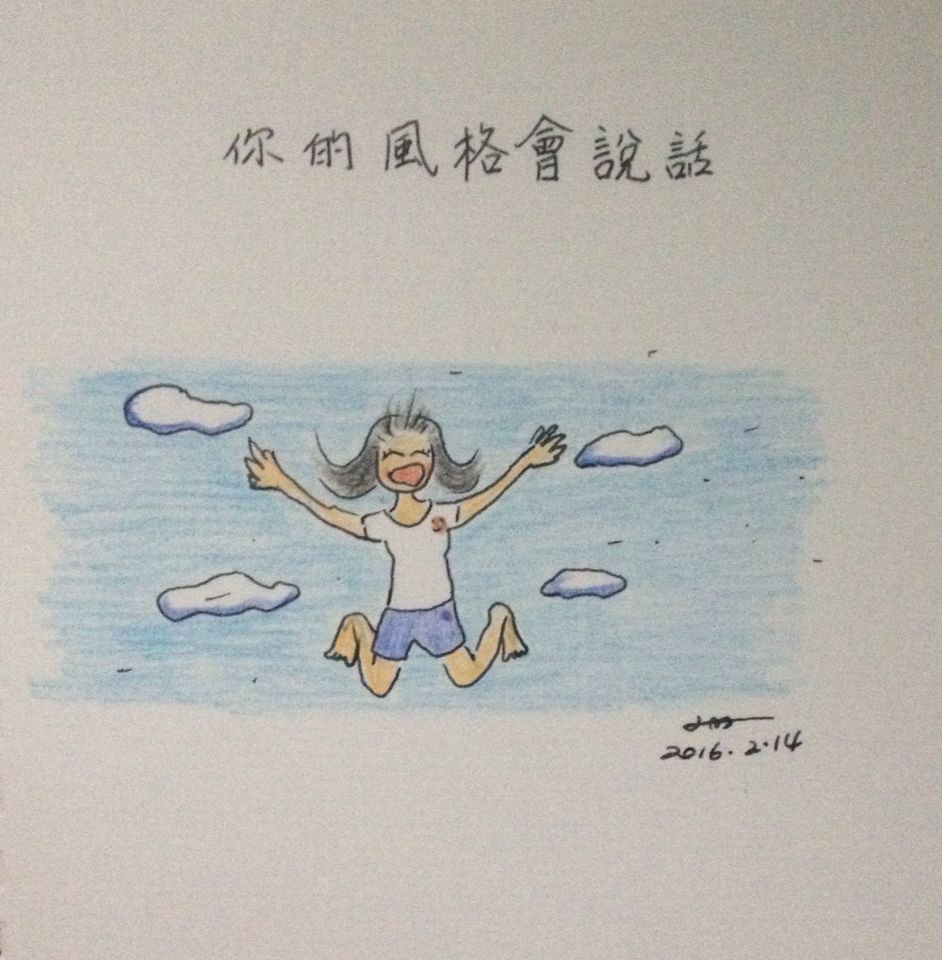 你的風格會說話
2016.2.14